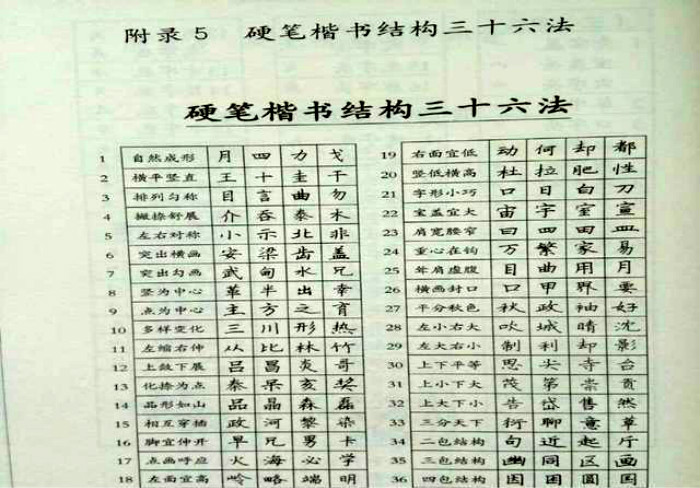 附录5 硬笔楷书结构三十六法
硬笔楷书结构三十六法
1 自然成形 月 四 力 戈
2 横平竖直 王 十 圭 干
3 排列匀称 目 言 曲 勿
4 撇捺舒展 介 吞 泰 木
5 左右对称 小 示 北 非
6 突出横画 安 梁 齿 盖
7 突出勾画 武 甸 水 兄
8 竖为中心 革 半 出 幸
9 点为中心 主 方 之 育
10 多样变化 三 川 形 热
11 左缩右伸 从 比 林 竹
12 上鼓下展 吕 昌 炎 哥
13 化捺为点 秦 呆 亥 奖
14 品形如山 品 晶 森 磊
15 相互穿插 政 河 黎 染
16 脚宜伸开 早 兄 男 卡
17 点画呼应 火 海 必 学
18 左面宜高 岭 略 端 明
19 右面宜低 动 何 却 都
20 竖低横高 杜 拉 肥 性
21 字形小巧 口 日 白 刀
22 宝盖宜大 宙 宇 室 宣
23 肩宽腰窄 曰 四 田 皿
24 重心在钩 万 繁 家 易
25 耸肩虚腹 目 曲 用 月
26 横画封口 口 甲 界 要
27 平分秋色 秋 政 袖 好
28 左小右大 吹 城 晴 沈
29 左大右小 制 利 却 影
30 上下平等 思 尖 寺 台
31 上小下大 茂 第 崇 贡
32 上大下小 告 岱 售 然
33 三分天下 衍 聊 意 章
34 二包结构 句 近 起 厅
35 三包结构 幽 同 区 画
36 四包结构 因 困 圆 国